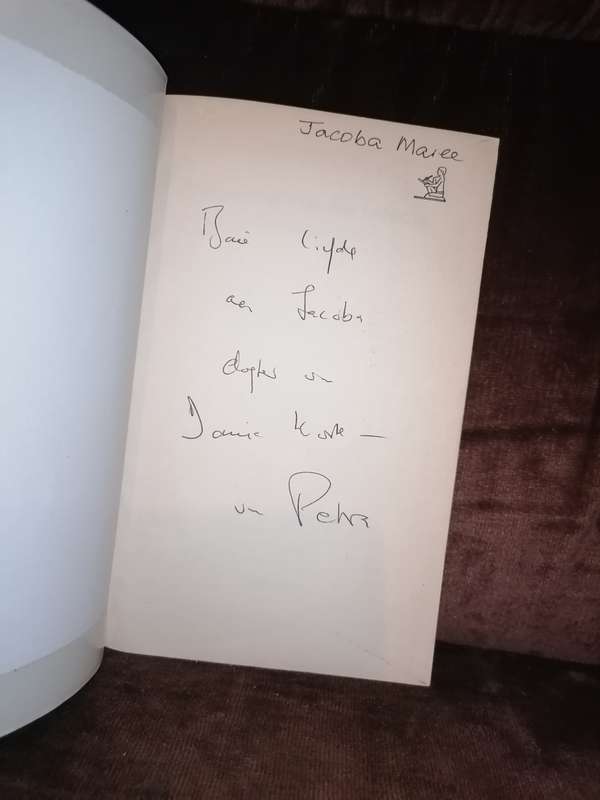 Jacoba Maree
Baie liefde
aan Jacoba
dogter van
Jannie
van Petra